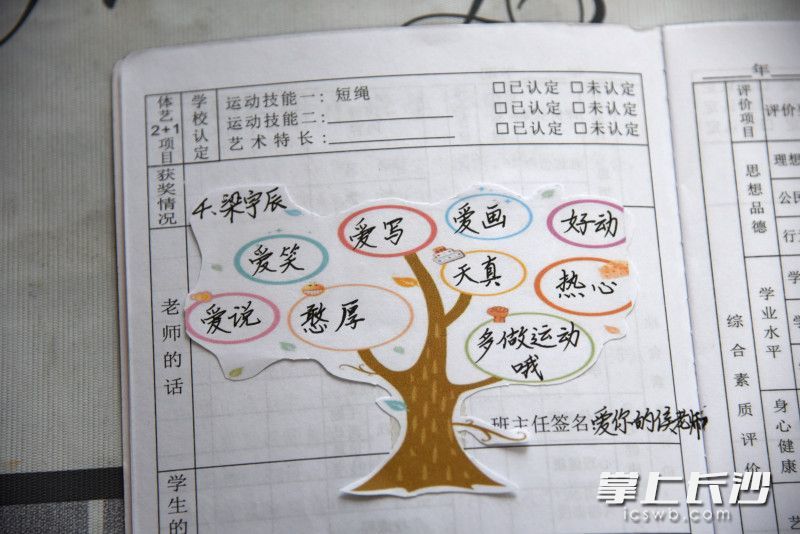 体艺
2+1
项目
学校认定
运动技能一：短绳
□已认定 □未认定
运动技能二：
□已认定 □未认定
艺术特长：
□已认定 □未认定
获奖情况
老师的话
梁宇辰
爱笑
爱写
爱画
好动
爱说
憨厚
天真
热心
多做运动
哦
班主任签名 爱你的侯老师
学生的
年
评价项目
思想品德
公民
学业水平
综合素质评价
身心健康
掌上长沙
icswb.com